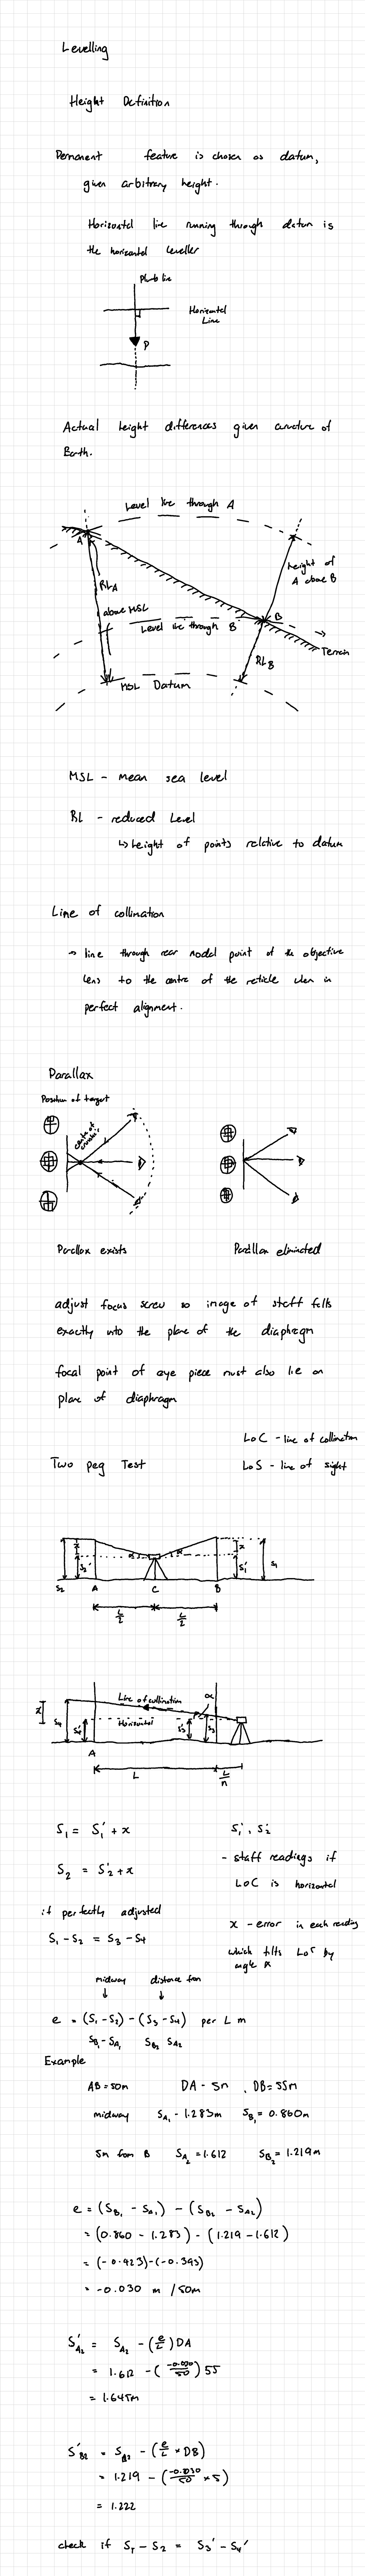 Levelling
Height Definition
Permanent feature is chosen as datum,
given arbitrary height.
Horizontal line running through datum is
the horizontal leveller
Plumb line
Horizontal
Line
P
Actual height differences given curvature of
Earth.
Level line through A
A
height of
A above B
RLA
above MSL
B
Level line through B
Terrain
RLB
MSL Datum
MSL - mean sea level
RL - reduced Level
↳ height of points relative to datum
Line of collimation
→ line through rear nodal point of the objective
lens to the centre of the reticle when in
perfect alignment.
Parallax
Position of target
Parallax exists
Parallax eliminated
adjust focus screw so image of staff falls
exactly into the plane of the diaphragm
focal point of eye piece must also lie on
plane of diaphragm
LoC - line of collimation
Two peg Test
LoS - line of sight
x
S2'
α
α
x
S1'
S1
S2
A
C
B
L/2
L/2
Line of collimation
α
x
S4
S4'
Horizontal
S3'
S3
A
L
L/n
S1 = S1' + x
S1', S2'
S2 = S2' + x
- staff readings if
LoC is horizontal
if perfectly adjusted
x - error in each reading
S1 - S2 = S3 - S4
which tilts LoC by
angle α
midway distance from
↓ ↓
e = (S1 - S2) - (S3 - S4) per L m
SB1 - SA1 SB2 SA2
Example
AB = 50m DA - 5m , DB = 55m
midway SA1 - 1.283m SB1 = 0.860m
5m from B SA2 = 1.612 SB2 = 1.219m
e = (SB1 - SA1) - (SB2 - SA2)
= (0.860 - 1.283) - (1.219 - 1.612)
= (-0.423) - (-0.393)
= -0.030 m / 50m
S'A2 = SA2 - (e/L) DA
= 1.612 - (-0.030/50) 55
= 1.645m
S'B2 = SB2 - (e/L × DB)
= 1.219 - (-0.030/50 × 5)
= 1.222
check if S1 - S2 = S3' - S4'